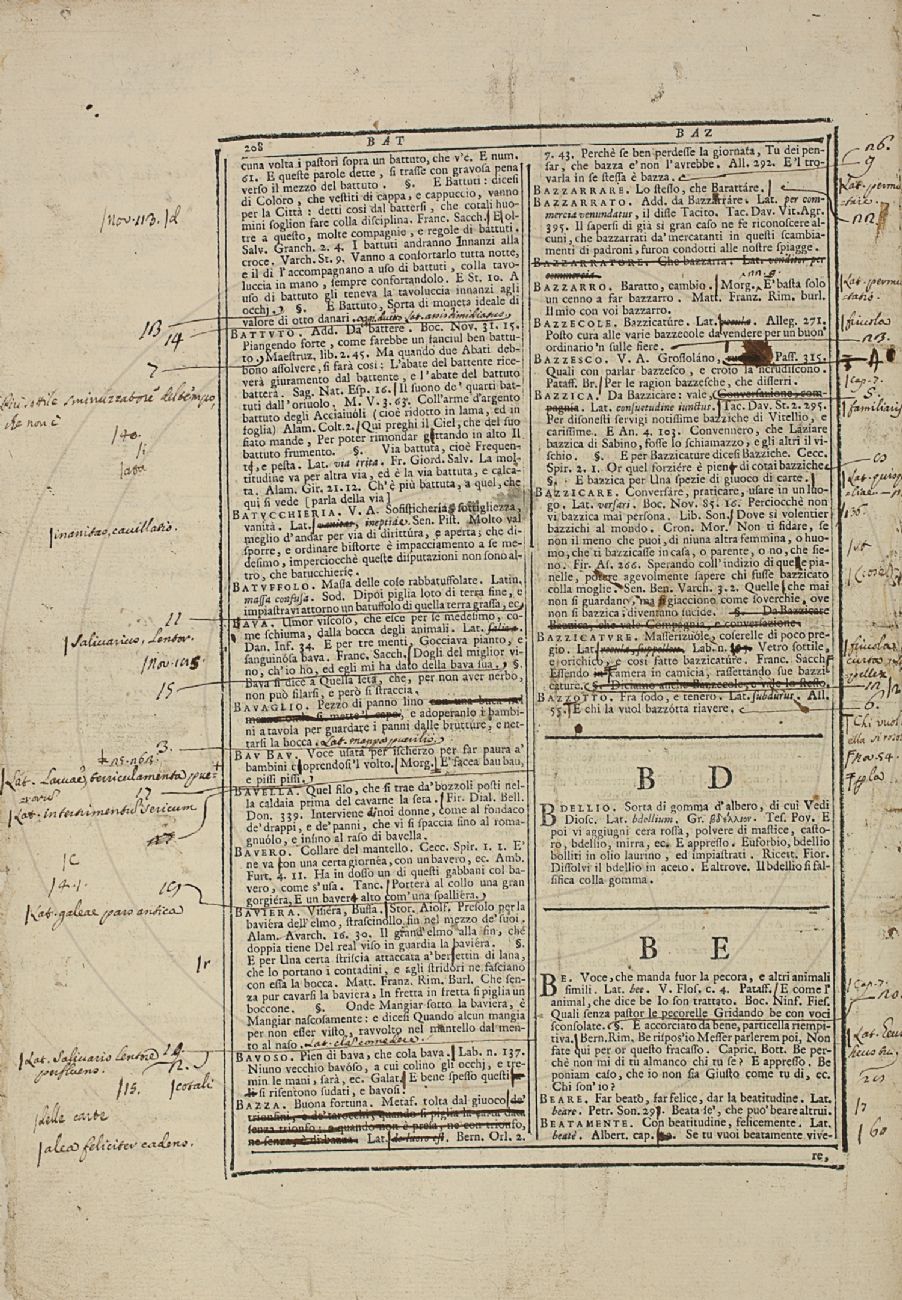 208
BAT
BAZ
cuna volta i pastori sopra un battuto, che v'è. E num.
61. E queste parole dette, si trasse con gravosa pena
verso il mezzo del battuto. §. E Battuti: dicesi
di Coloro, che vestiti di cappa, e cappuccio, vanno
per la Città: detti così dal battersi, che cotali huo-
mini soglion fare colla disciplina. Franc. Sacch. E ol-
tre a questo, molte compagnie, e regole di battuti.
Salv. Granch. 2. 4. I battuti andranno Innanzi alla
croce. Varch. St. 9. Vanno a confortarlo tutta notte,
e il dì l'accompagnano a uso di battuti, colla tavo-
luccia in mano, sempre confortandolo. E St. 10. A
uso di battuto gli teneva la tavoluccia innanzi agli
occhj. §. E Battuto, Sorta di moneta ideale di
valore di otto danari.
BATTUTO. Add. Da battere. Boc. Nov. 31. 15.
Piangendo forte, come farebbe un fanciul ben battu-
to. Maestruz. lib. 2. 45. Ma quando due Abati deb-
bono assolvere, si farà così: L'abate del battente rice-
verà giuramento dal battente, e l'abate del battuto
batterà. Sag. Nat. Esp. 16. Il suono de' quarti bat-
tuti dall'oriuolo. M. V. 3. 63. Coll'arme d'argento
battuto degli Acciaiuoli (cioè ridotto in lama, ed in
foglia) Alam. Colt. 2. Qui preghi il Ciel, che del suo
fiato mande, Per poter rimondar gittando in alto Il
battuto frumento. §. Via battuta, cioè Frequen-
te, e pesta. Lat. via trita. Fr. Giord. Salv. La mol-
titudine va per altra via, ed è la via battuta, e calca-
ta. Alam. Gir. 21. 12. Ch'è più battuta, a quel, che
qui si vede [parla della via]
BATUCCHIERIA. V. A. Sofisticheria, sottigliezza,
vanità. Lat. ineptiae. Sen. Pist. Molto val
meglio d'andar per via di dirittura, e aperta; che di-
sporre, e ordinare bistorte è impacciamento a se me-
desimo, imperciocchè queste disputazioni non sono al-
tro, che batucchierie.
BATUFFOLO. Massa delle cose rabbatuffolate. Latin.
massa confusa. Sod. Dipoi piglia loto di terra fine, e
impiastravi attorno un batuffolo di quella terra grassa, ec.
BAVA. Umor viscoso, che esce per se medesimo, co-
me schiuma, dalla bocca degli animali. Lat. saliva.
Dan. Inf. 34. E per tre menti, Gocciava pianto, e
sanguinosa bava. Franc. Sacch. Dogli del miglior vi-
no, ch'io ho, ed egli mi ha dato della bava sua. §.
Bava si dice a Quella seta, che, per non aver nerbo,
non può filarsi, e però si straccia.
BAVAGLIO. Pezzo di panno lino con una buca nel
mezzo onde si mette 'l capo, e adoperanlo i bambi-
ni a tavola per guardare i panni dalle brutture, e net-
tarsi la bocca.
BAU BAU. Voce usata per ischerzo per far paura a'
bambini coprendosi 'l volto. Morg. E facea bau bau,
e pissi pissi.
BAVELLA. Quel filo, che si trae da' bozzoli posti nel-
la caldaia prima del cavarne la seta. Fir. Dial. Bell.
Don. 339. Interviene a noi donne, come al fondaco
de' drappi, e de' panni, che vi si spaccia sino al roma-
gnuolo, e insino al raso di bavella.
BAVERO. Collare del mantello. Cecc. Spir. 1. 1. E'
ne va con una certa giornéa, con un bavero, ec. Amb.
Furt. 4. 11. Ha in dosso un di questi gabbani col ba-
vero, come s'usa. Tanc. Porterà al collo una gran
gorgiéra, E un bavero alto com'una spalliéra.
BAVIERA. Visiera, Buffa. Stor. Aiolf. Presolo per la
bavièra dell'elmo, strascinollo fin nel mezzo de' suoi.
Alam. Avarch. 16. 30. Il grand'elmo alla fin, che
doppia tiene Del real viso in guardia la bavièra. §.
E per Una certa striscia attaccata a' berrettin di lana,
che lo portano i contadini, e agli stridori ne fasciano
con essa la bocca. Matt. Franz. Rim. Burl. Che sen-
za pur cavarsi la bavièra, In fretta in fretta si piglia un
boccone. §. Onde Mangiar sotto la bavièra, è
Mangiar nascosamente: e dicesi Quando alcun mangia
per non esser visto, ravvolto nel mantello dal men-
to al naso.
BAVOSO. Pien di bava, che cola bava. Lab. n. 137.
Niuno vecchio bavoso, a cui colino gli occhj, e tre-
min le mani, sarà, ec. Galat. E bene spesso questi
si risentono sudati, e bavosi.
BAZZA. Buona fortuna. Metaf. tolta dal giuoco de'
trionfini, e de' tarocchi, quando si piglia la carta data
senza trionfo: e quando non è presa, ne con trionfo,
ne senza, è di bazza. Lat. Bern. Orl. 2.
7. 43. Perchè se ben perdesse la giornata, Tu dei pen-
sar, che bazza e' non l'avrebbe. All. 292. E 'l tro-
varla in se stessa è bazza.
BAZZARRARE. Lo stesso, che Barattáre.
BAZZARRATO. Add. da Bazzarráre. Lat. per com-
mercia venundatus, il disse Tacito. Tac. Dav. Vit. Agr.
395. Il sapersi di già sì gran caso ne fè riconoscere al-
cuni, che bazzarrati da' mercatanti in questi scambia-
menti di padroni, furon condotti alle nostre spiagge.
BAZZARRATORE. Che bazzarra. Lat. venditor per
commercia.
BAZZARRO. Baratto, cambio. Morg. E' basta solo
un cenno a far bazzarro. Matt. Franz. Rim. burl.
Il mio con voi bazzarro.
BAZZECOLE. Bazzicatúre. Lat. Alleg. 271.
Posto cura alle varie bazzecole da vendere per un buon'
ordinario 'n sulle fiere.
BAZZESCO. V. A. Grossoláno, Paff. 315.
Quali con parlar bazzesco, e croio la 'ncrudiscono.
Pataff. Br. Per le ragion bazzesche, che disserri.
BAZZICA. Da Bazzicáre: vale, Conversazione, com-
pagnia. Lat. consuetudine iunctus. Tac. Dav. St. 2. 295.
Per disonesti servigi notissime bazziche di Vitellio, e
carissime. E An. 4. 103. Convennero, che Láziare
bazzica di Sabino, fosse lo schiamazzo, e gli altri il vi-
schio. §. E per Bazzicature dicesi Bazziche. Cecc.
Spir. 2. 1. Or quel forziére è pien di cotai bazziche
§. E bazzica per Una spezie di giuoco di carte.
BAZZICARE. Conversáre, praticare, usare in un luo-
go. Lat. versari. Boc. Nov. 85. 16. Perciocchè non
vi bazzica mai persona. Lib. Son. Dove si volentier
bazzichi al mondo. Cron. Mor. Non ti fidare, se
non il meno che puoi, di niuna altra femmina, o huo-
mo, che ti bazzicasse in casa, o parente, o no, che sie-
no. Fir. As. 266. Sperando coll'indizio di quelle pia-
nelle, potere agevolmente sapere chi fusse bazzicato
colla moglie. Sen. Ben. Varch. 3. 2. Quelle che mai
non si guardano, ma si giacciono come soverchie, ove
non si bazzica: diventano sucide. §. Da Bazzicare
Bazzica, che vale Compagnia, e conversazione.
BAZZICATURE. Masserizuole, coserelle di poco pre-
gio. Lat. Lab. n. Vetro sottile,
e orichico, e così fatte bazzicature. Franc. Sacch.
Essendo in camera in camicia, rassettando sue bazzi-
cature. §. Diciamo anche Bazzecole, e vale lo stesso.
BAZZOTTO. Fra sodo, e tenero. Lat. subdurus. All.
55. E chi la vuol bazzòtta riavere.
B D
BDELLIO. Sorta di gomma d'albero, di cui Vedi
Diosc. Lat. bdellium. Gr. βδέλλιον. Tes. Pov. E
poi vi aggiugni cera rossa, polvere di mastice, casto-
ro, bdellio, mirra, ec. E appresso. Euforbio, bdellio
bolliti in olio laurino, ed impiastrati. Ricett. Fior.
Dissolvi il bdellio in aceto. E altrove. Il bdellio si fal-
sifica colla gomma.
B E
BE. Voce, che manda fuor la pecora, e altri animali
simili. Lat. bee. V. Flos. c. 4. Pataff. E come l'
animal, che dice be Io son trattato. Boc. Ninf. Fies.
Quali senza pastor le pecorelle Gridando be con voci
sconsolate. §. E accorciato da bene, particella riempi-
tiva. Bern. Rim. Be rispos'io Messer parlerem poi, Non
fate qui per or questo fracasso. Capric. Bott. Be per-
chè non mi di tu almanco chi tu se? E appresso. Be
poniam caso, che io non sia Giusto come tu di, ec.
Chi son'io?
BEARE. Far beato, far felice, dar la beatitudine. Lat.
beare. Petr. Son. 293. Beata se', che può' beare altrui.
BEATAMENTE. Con beatitudine, felicemente. Lat.
beatè. Albert. cap. Se tu vuoi beatamente vive-
re,
13
14
7
inanitas, cavillatio.
11
15
3.
Lat. galeae pars antica
delle carte
alea feliciter cadens.